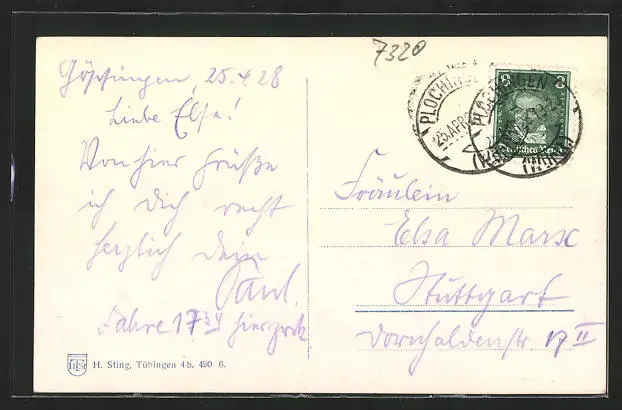 7320
Göppingen, 25.4.28
Liebe Elsa!
Von hier Grüße
ich Dich recht
herzlich Dein
Paul.
Fahre 17 34 hier
PLOCHINGEN
25.APR
PLOCHINGEN
8 8
Deutsches Reich
Fräulein
Elsa Marx
Stuttgart
Dornhaldenstr II
H. Sting, Tübingen 4b. 490 6.